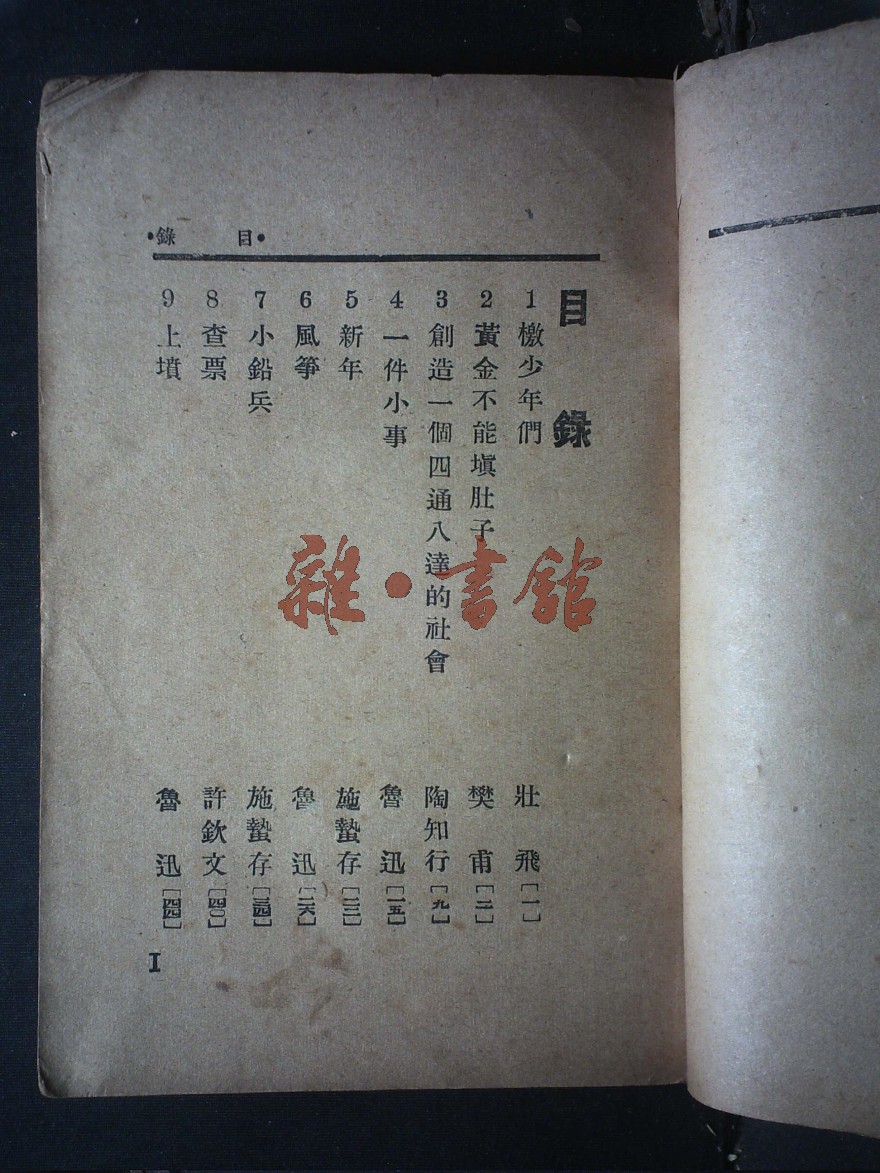 •錄 目•
目錄
1 檄少年們 壯飛[一]
2 黃金不能塡肚子 樊甫[二]
3 創造一個四通八達的社會 陶知行[九]
4 一件小事 魯迅[一五]
5 新年 施蟄存[二三]
6 風箏 魯迅[二六]
7 小鉛兵 施蟄存[三四]
8 查票 許欽文[四〇]
9 上墳 魯迅[四四]
I
雜·書館